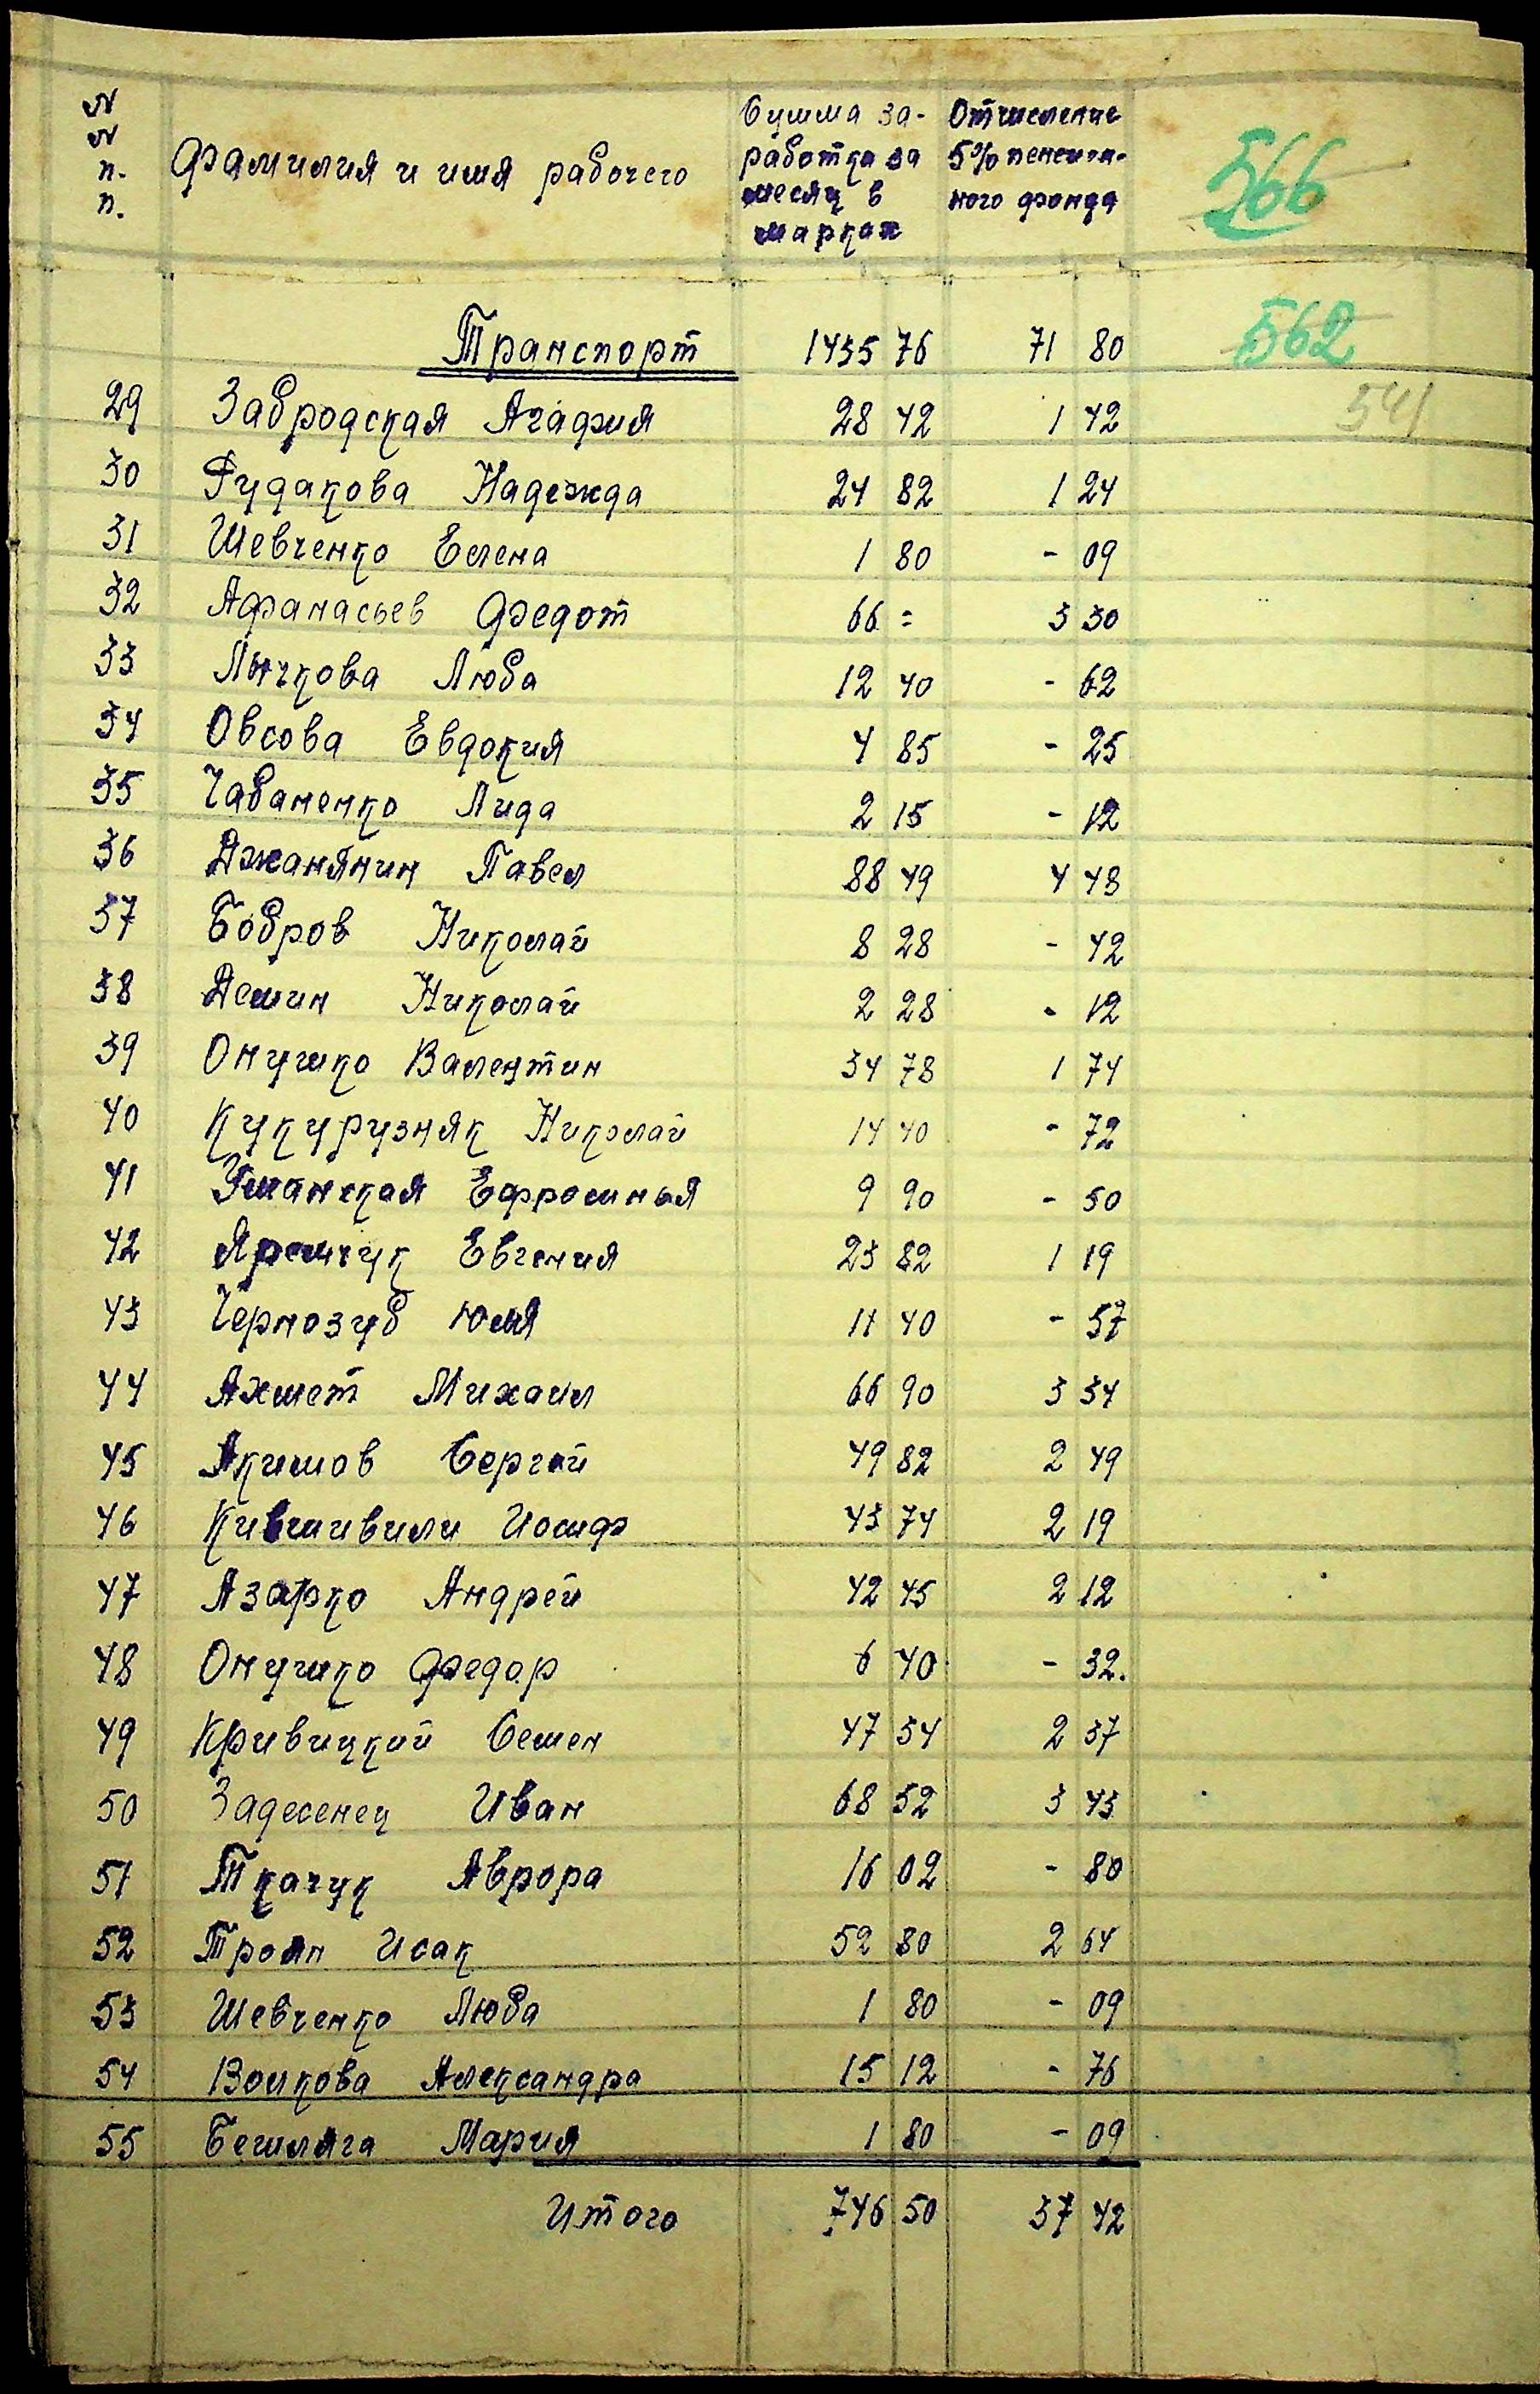 N
N
п.
п.
Фамилия и имя рабочего
Сумма за-
работка за
месяц в
марках
Отчисление
5% пенсион-
ного фонда
566
Транспорт 1435 76 71 80
562
541
29 Забродская Агафия 28 42 1 42
30 Рудакова Надежда 24 82 1 24
31 Шевченко Елена 1 80 - 09
32 Афанасьев Федот 66 = 3 30
33 Лычкова Люба 12 40 - 62
34 Овсова Евдокия 4 85 - 25
35 Чабаненко Лида 2 15 - 12
36 Джанянин Павел 88 49 4 43
37 Бобров Николай 8 28 - 42
38 Демин Николай 2 28 - 12
39 Онушко Валентин 34 78 1 74
40 Кукурузняк Николай 14 40 - 72
41 Уманская Ефросинья 9 90 - 50
42 Яремчук Евгения 23 82 1 19
43 Чернозуб Юля 11 40 - 57
44 Ахмет Михаил 66 90 3 34
45 Акимов Сергей 49 82 2 49
46 Кившивили Иосиф 43 74 2 19
47 Азарко Андрей 42 45 2 12
48 Онушко Федор 6 40 - 32.
49 Кривицкий Семен 47 34 2 37
50 Задесенец Иван 68 52 3 43
51 Ткачук Аврора 16 02 - 80
52 Троян Исак 52 80 2 64
53 Шевченко Люба 1 80 - 09
54 Волкова Александра 15 12 - 76
55 Бешляга Мария 1 80 - 09
Итого 746 50 37 42